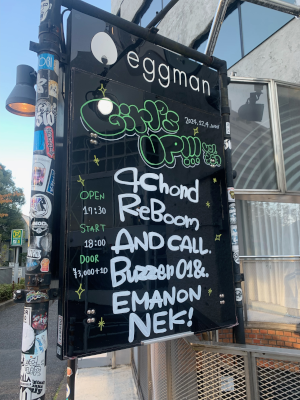 eggman
Girl's
2024.12.4
UP!!!
4Chord
ReBoom
OPEN
17:30
AND CALL.
START
18:00
Buzzer 018.
DOOR
¥3,000+1D
EMANON
NEK!